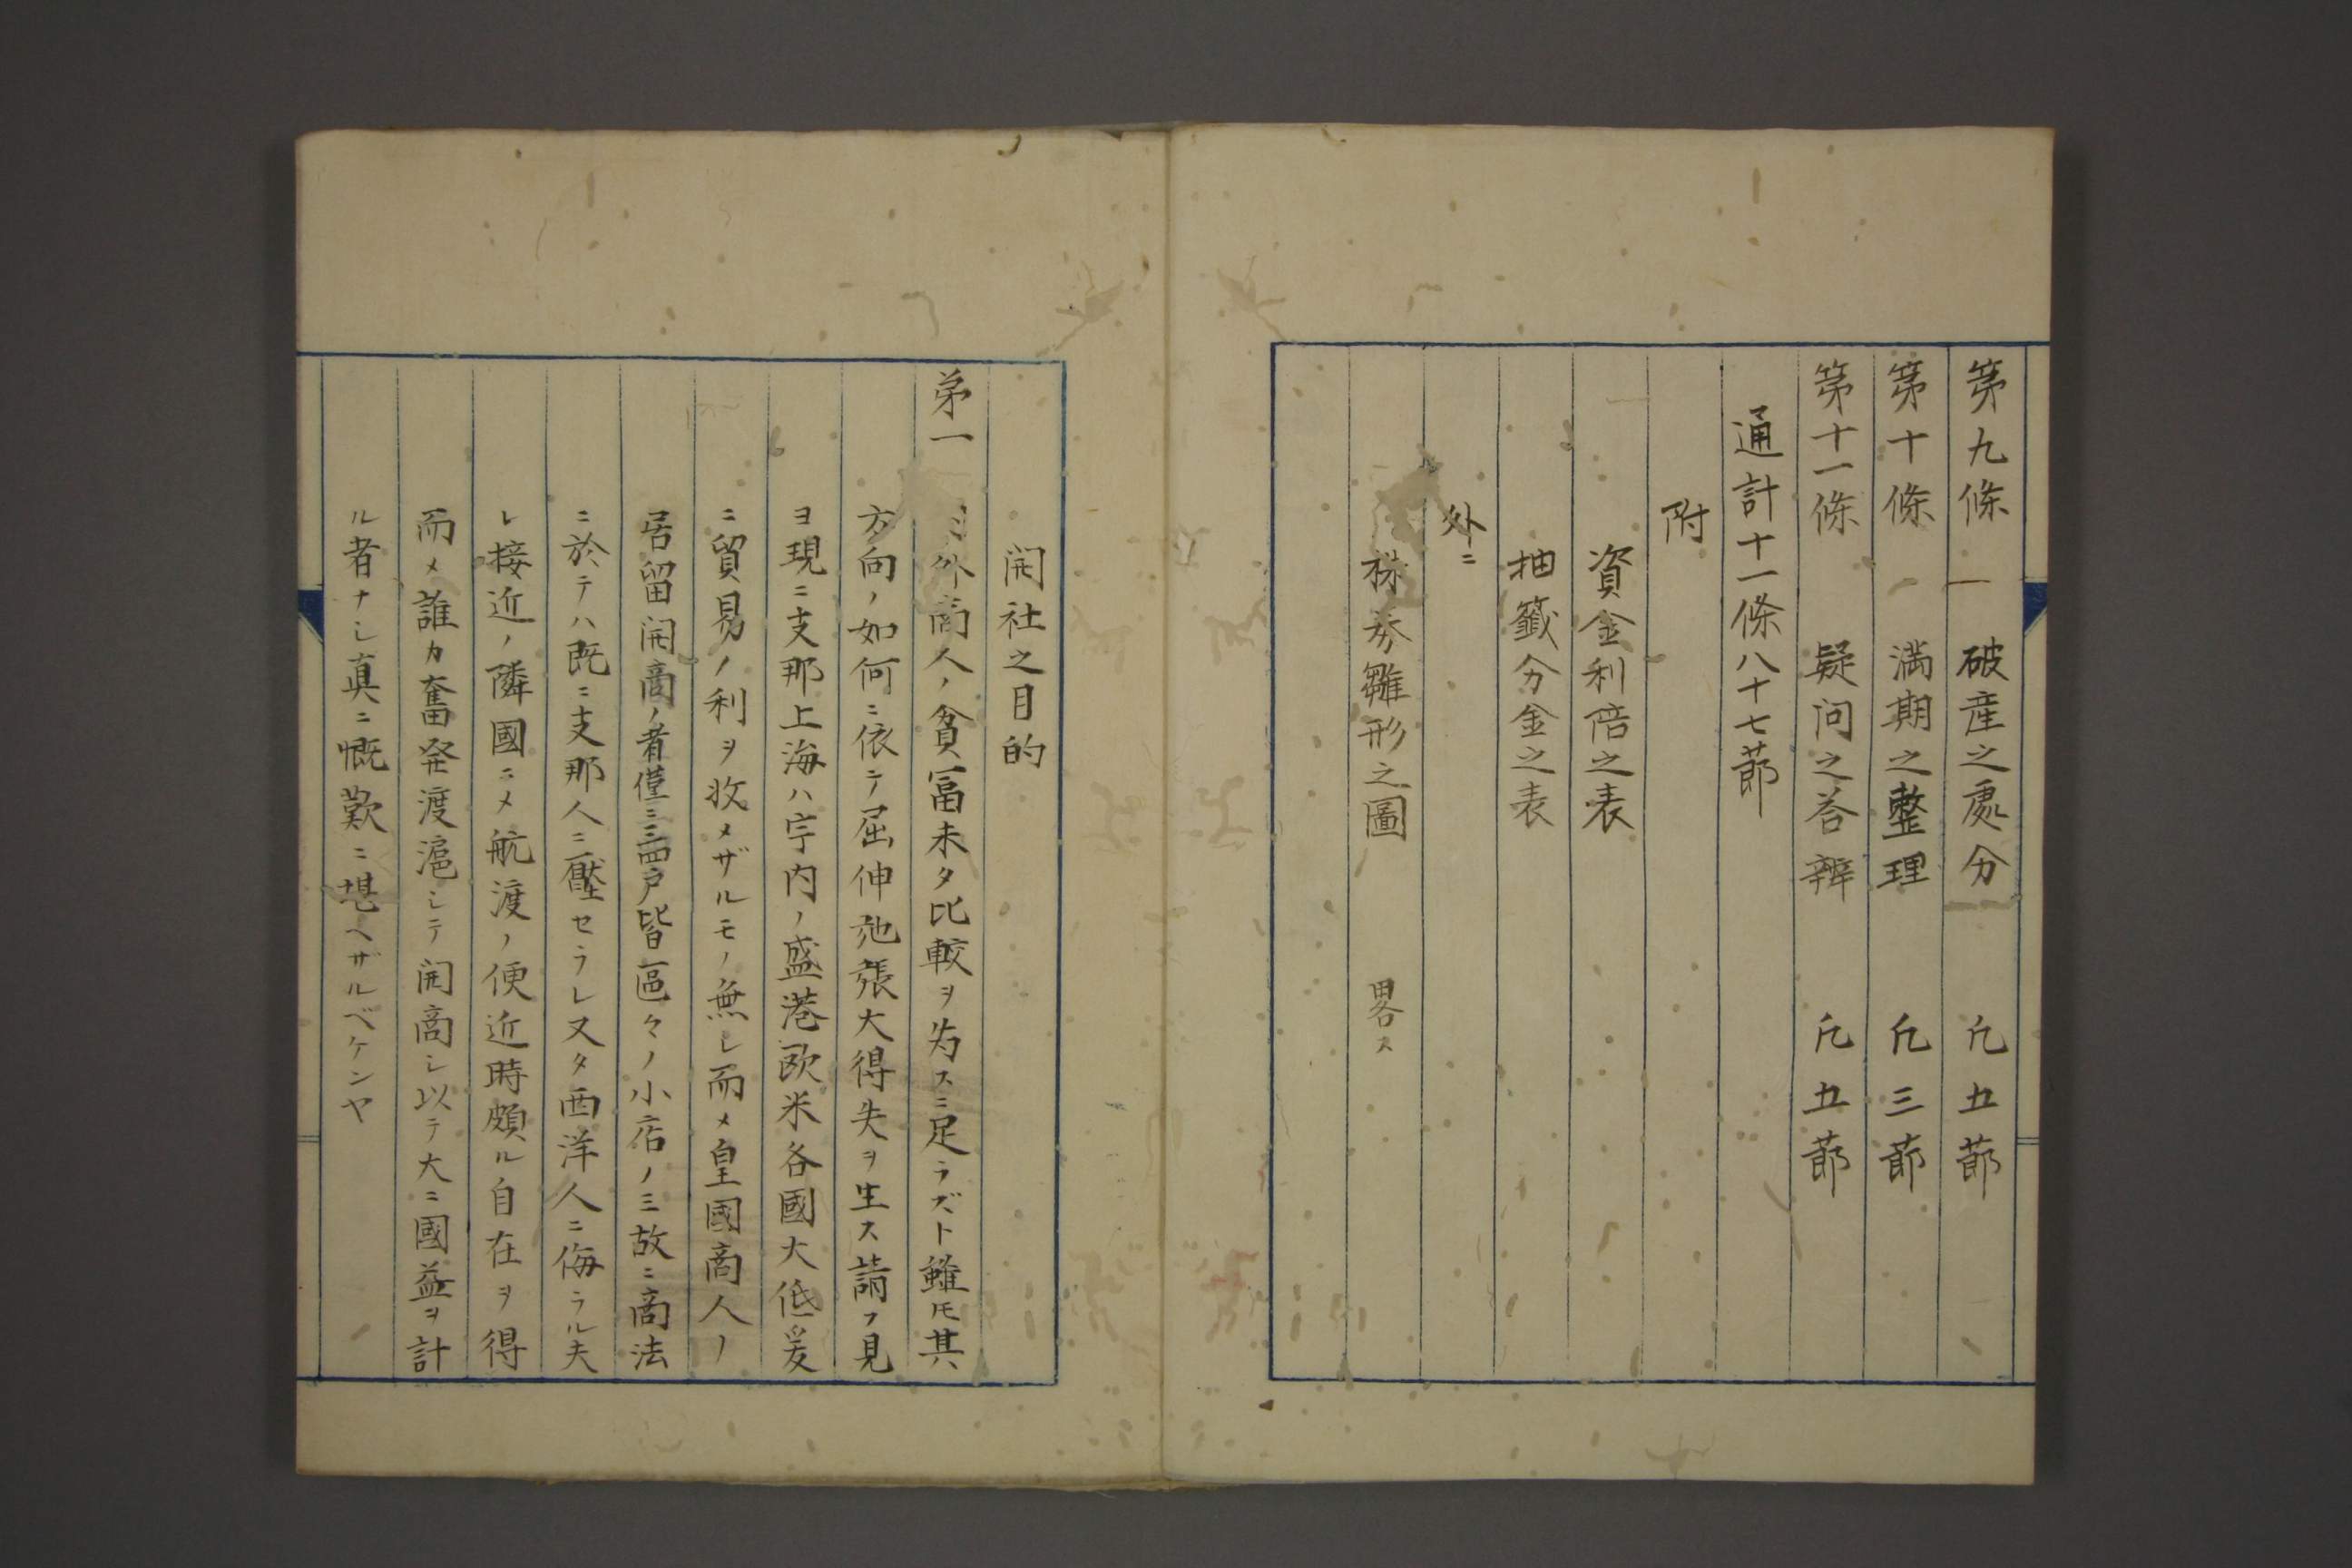 第九條 破産之處分 凢五莭
第十條 満期之整理 凢三莭
第十一條 疑问之荅辨 凢五莭
通計十一條八十七莭
附
資金利倍之表
抽籤分金之表
外ニ
株券雛形之圖 畧ス
開社之目的
第一 外商人ノ貧富未タ比較ヲ為スニ足ラズト雖𪜈其
方向ノ如何ニ依テ屈伸弛張大得失ヲ生ス請フ見
ヨ現ニ支那上海ハ宇内ノ盛港欧米各國大低爰
ニ貿易ノ利ヲ收メザルモノ無レ而メ皇國商人ノ
居留開商ノ者僅ニ三四戸皆區々ノ小店ノミ故ニ商法
ニ於テハ既ニ支那人ニ壓セラレ又タ西洋人ニ侮ラル夫
レ接近ノ隣國ニメ航渡ノ便近時頗ル自在ヲ得
而メ誰カ奮発渡滬シテ開商シ以テ大ニ國益ヲ計
ル者ナシ真ニ慨歎ニ堪ヘザルベケンヤ